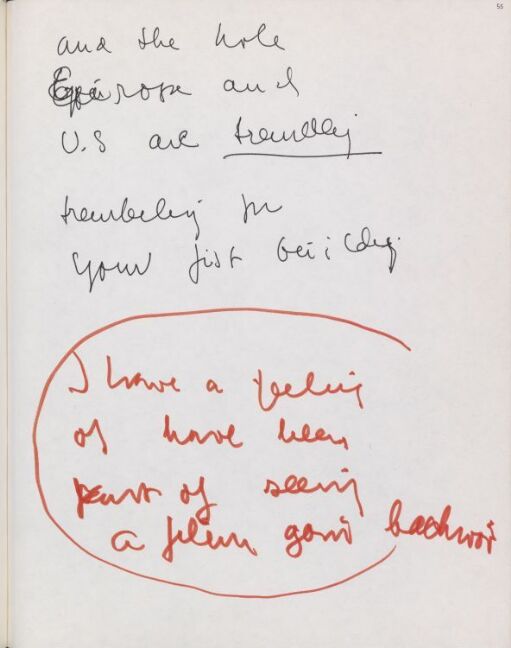 55
and the hole
Europe and
U.S are trembling
trembeling for
your fist building.
I have a feeling
of have been
part of seeing
a film going backwor